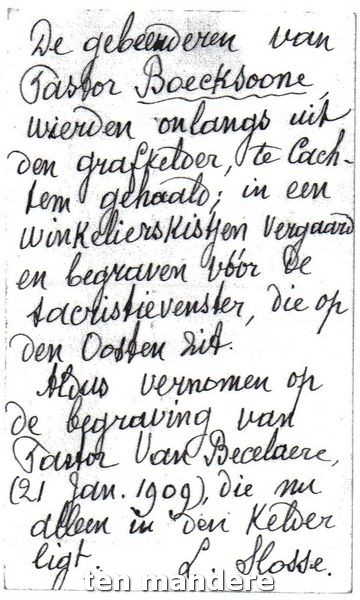 De gebeenderen van
Pastor Boecksoone,
wierden onlangs uit
den grafkelder, te Cach-
tem gehaald; in een
winkelierskistjen vergaard
en begraven vóór de
sacristievenster, die op
den Oosten zit.
Aldus vernomen op
de begraving van
Pastor Van Becelaere,
(21 Jan. 1909), die nu
alleen in den Kelder
ligt. L. Slosse.
ten mandere